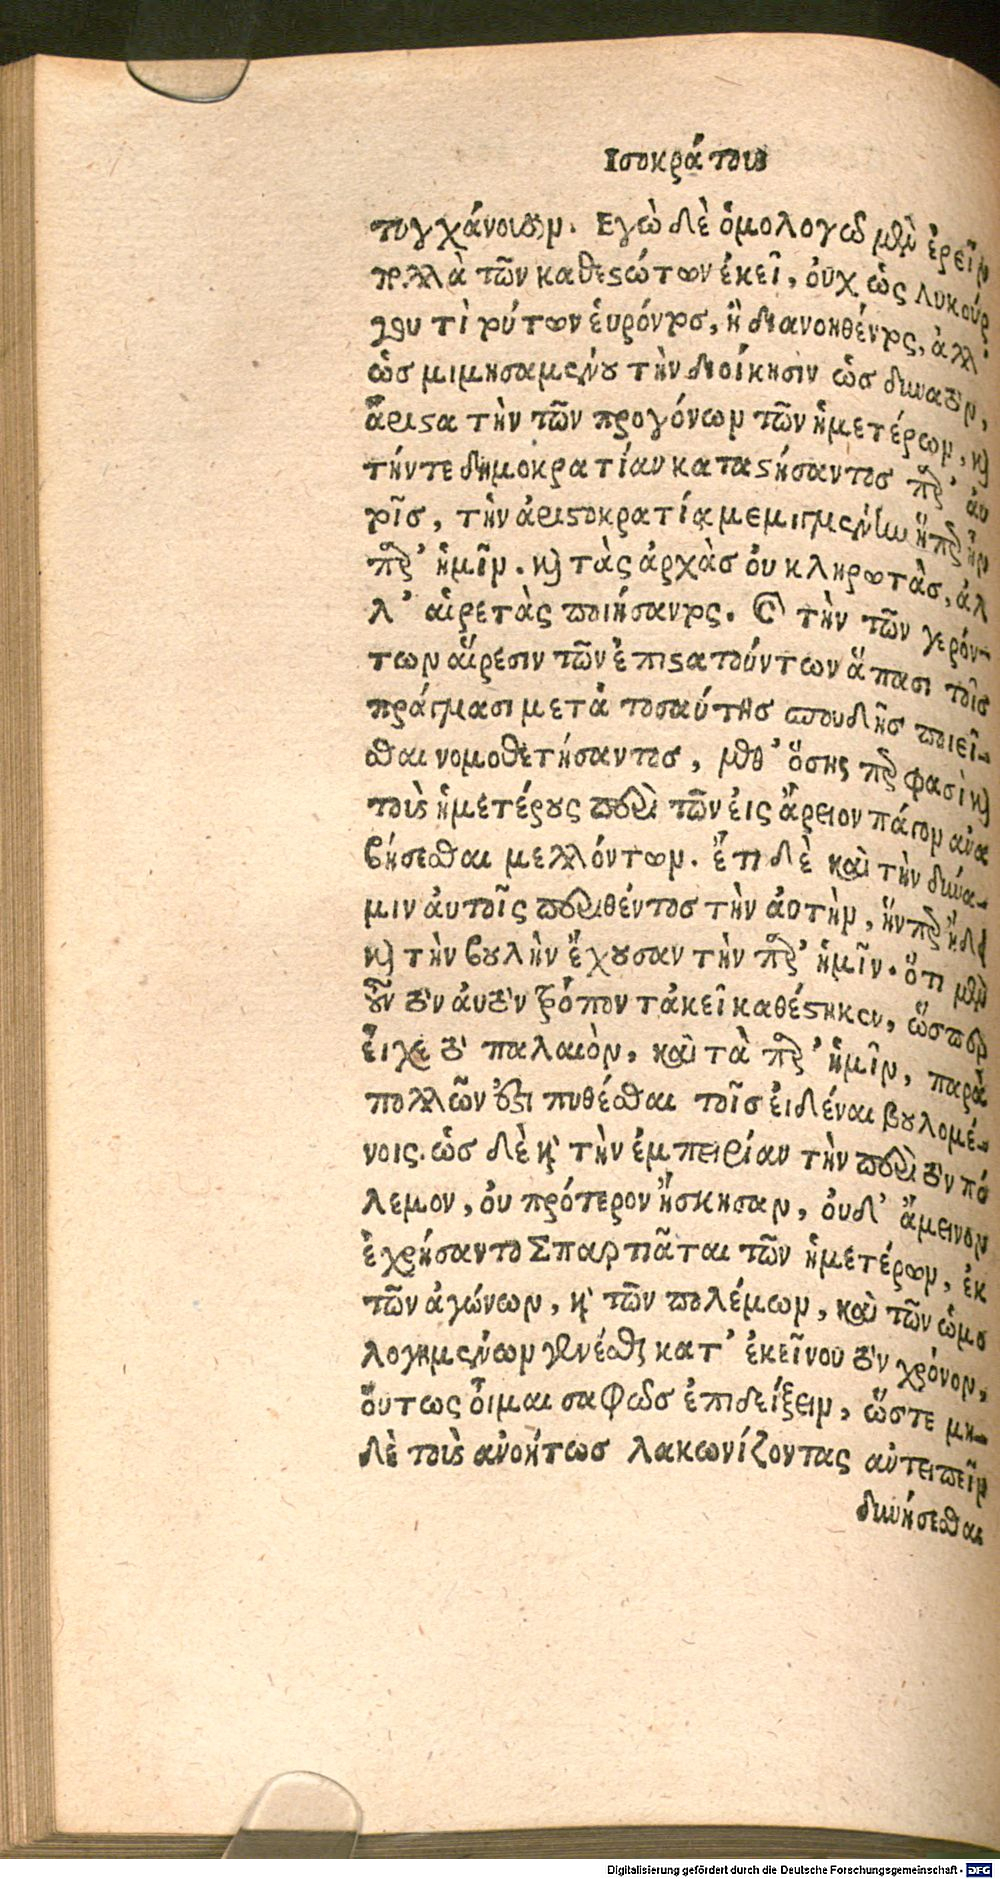 Ισοκράτους
τυγχάνοιεν. Εγὼ δὲ ὁμολογῶ μὲν ἐρεῖν
πολλὰ τῶν καθεστώτων ἐκεῖ, οὐχ ὡς Λυκούρ
γου τὶ τούτων ἑυρόντος, ἢ διανοηθέντος, ἀλλ'
ὡς μιμησαμένου τὴν διοίκησιν ὡς δυνατὸν,
ἄριστα τὴν τῶν προγόνων τῶν ἡμετέρων, καὶ
τήν τε δημοκρατίαν καταστήσαντος παρ' αυ
τοῖς, τὴν ἀριστοκρατίᾳ μεμιγμένην ἥπερ ἦν
παρ' ἡμῖν. καὶ τὰς ἀρχὰς ὀυ κληρωτὰς, ἀλ
λ' αἱρετὰς ποιήσαντος. καὶ τὴν τῶν γερόν-
των αἵρεσιν τῶν ἐπιστατούντων ἅπασι τοῖς
πράγμασι μετὰ τοσαύτης σπουδῆς ποιεῖ-
σθαι νομοθετήσαντος, μεθ' ὅσης πέρ φασὶ καὶ
τοὺς ἡμετέρους περὶ τῶν ἐις ἄρειον πάγον ἀνα
βήσεσθαι μελλόντων. ἔτι δὲ καὶ τὴν δύνα-
μιν ἀυτοῖς περιθέντος τὴν ἀυτὴν, ἥνπερ ἤδει
καὶ τὴν βουλὴν ἔχουσαν τὴν παρ' ἡμῖν. ὅτι μὲν
οὖν τὸν ἀυτὸν τρόπον τἀκεῖ καθέστηκεν, ὥσπερ
εἶχε τὸ παλαιὸν, καὶ τὰ παρ' ἡμῖν, παρὰ
πολλῶν ἔξεστι πυθέσθαι τοῖς ἐιδέναι βουλομέ-
νοις. ὡς δὲ καὶ τὴν ἐμπειρίαν τὴν περὶ τὸν πό
λεμον, ὀυ πρότερον ἤσκησαν, ὀυδ' ἄμεινον
ἐχρήσαντο Σπαρτιᾶται τῶν ἡμετέρων, ἐκ
τῶν ἀγώνων, καὶ τῶν πολέμων, καὶ τῶν ὡμο
λογημένων γενέσθαι κατ' ἐκεῖνον τὸν χρόνον,
ὅυτως ὄιμαι σαφῶς ἐπιδείξειν, ὥστε μη-
δὲ τοὺς ἀνοήτως λακωνίζοντας ἀντειπεῖν
δυνήσεσθαι
Digitalisierung gefördert durch die Deutsche Forschungsgemeinschaft - DFG